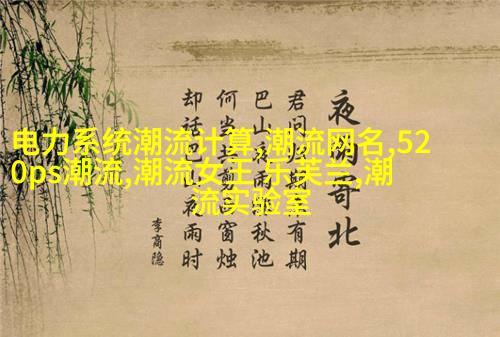 电力系统潮流计算,潮流网名,52
0ps潮流,潮流女王,乐芙兰,潮
流实验室
夜雨寄北
君问归期有期
巴山夜雨秋池
何当共剪窗烛
却话巴山夜雨时
李商隐